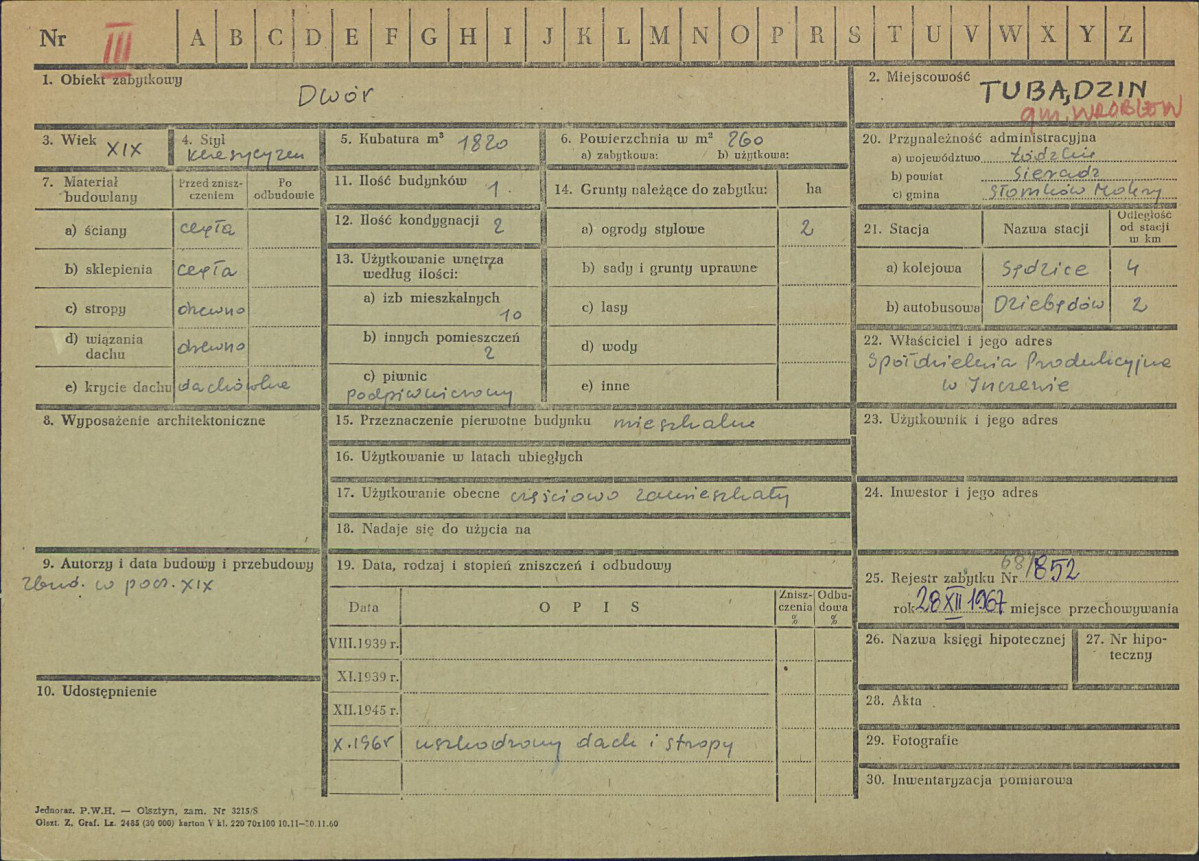 Nr III A B C D E F G H I J K L M N O P R S T U V W X Y Z
1. Obiekt zabytkowy
Dwór
2. Miejscowość
TUBĄDZIN
gm. WRÓBLEW
3. Wiek XIX
4. Styl
klasycyzm
5. Kubatura m³ 1820
6. Powierzchnia w m² 260
a) zabytkowa: b) użytkowa:
7. Materiał budowlany
Przed zniszczeniem
Po odbudowie
a) ściany cegła
b) sklepienia cegła
c) stropy drewno
d) wiązania dachu drewno
e) krycie dachu dachówka
8. Wyposażenie architektoniczne
9. Autorzy i data budowy i przebudowy
Zbud. w pocz. XIX
10. Udostępnienie
11. Ilość budynków 1.
12. Ilość kondygnacji 2
13. Użytkowanie wnętrza
według ilości:
a) izb mieszkalnych
10
b) innych pomieszczeń
2
c) piwnic
podpiwniczony
14. Grunty należące do zabytku: ha
a) ogrody stylowe 2
b) sady i grunty uprawne
c) lasy
d) wody
e) inne
15. Przeznaczenie pierwotne budynku mieszkalne
16. Użytkowanie w latach ubiegłych
17. Użytkowanie obecne częściowo zamieszkały
18. Nadaje się do użycia na
19. Data, rodzaj i stopień zniszczeń i odbudowy
Data O P I S Zniszczenia % Odbudowa %
VIII.1939 r.
XI.1939 r.
XII.1945 r.
X.1965 uszkodzony dach i stropy
20. Przynależność administracyjna
a) województwo Łódzkie
b) powiat Sieradz
c) gmina Słomków Mokry
21. Stacja Nazwa stacji Odległość od stacji w km
a) kolejowa Sędzice 4
b) autobusowa Dziebędów 2
22. Właściciel i jego adres
Spółdzielnia Produkcyjna
w Inczewie
23. Użytkownik i jego adres
24. Inwestor i jego adres
25. Rejestr zabytku Nr 68/852
rok 28 XII 1967 miejsce przechowywania
26. Nazwa księgi hipotecznej
27. Nr hipoteczny
28. Akta
29. Fotografie
30. Inwentaryzacja pomiarowa
Jednoraz. P.W.H. — Olsztyn, zam. Nr 3215/S
Olszt. Z. Graf. Lz. 2485 (30 000) karton V kl. 220 70x100 10.11—10.11.60